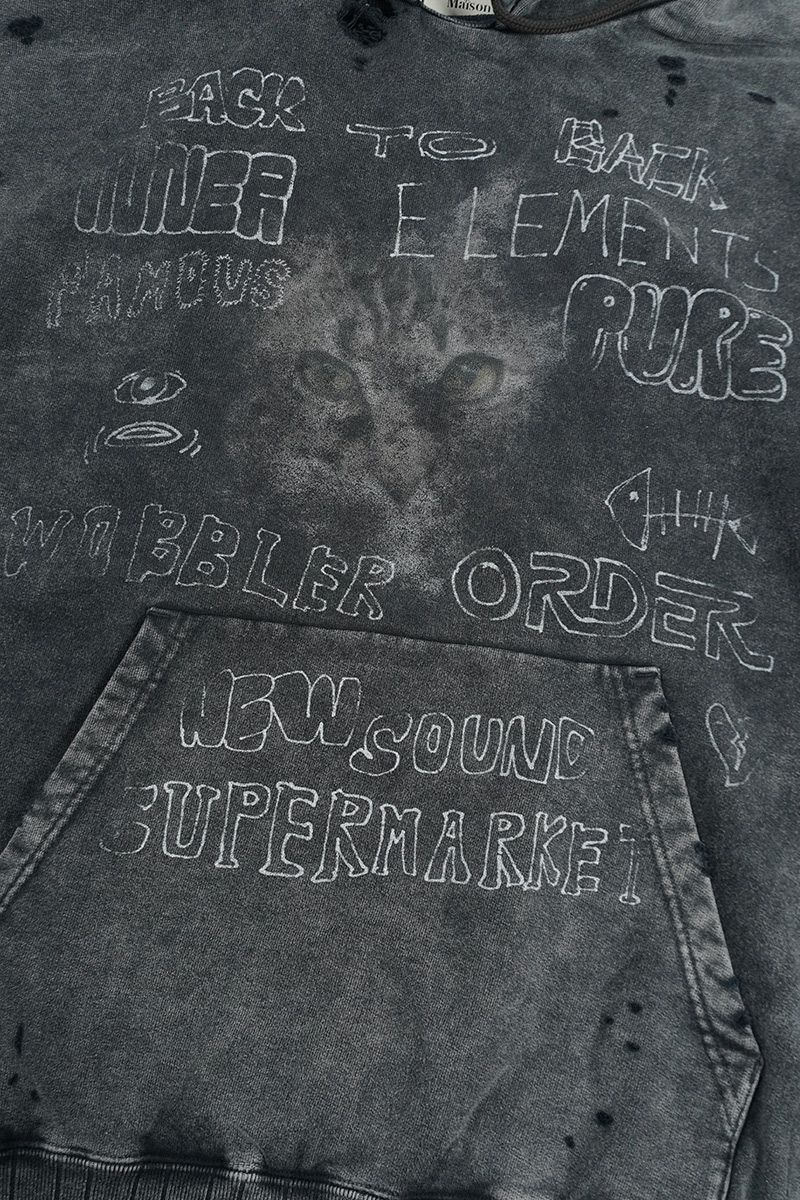 Maison
BACK TO BACK
INNER ELEMENTS
FAMOUS PURE
WOBBLER ORDER
NEW SOUND
SUPERMARKET